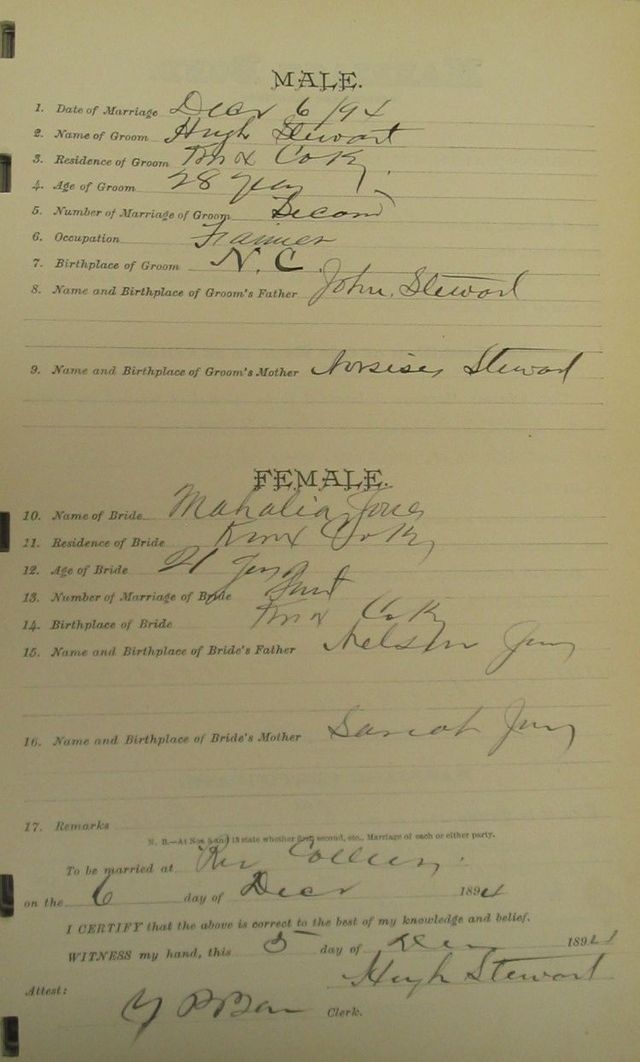 MALE.
1. Date of Marriage Decr 6/94
2. Name of Groom Hugh Stewart
3. Residence of Groom Knox Co Ky.
4. Age of Groom 28 years
5. Number of Marriage of Groom Second
6. Occupation Farmer
7. Birthplace of Groom N.C.
8. Name and Birthplace of Groom's Father John Stewart
9. Name and Birthplace of Groom's Mother Stewart
FEMALE.
10. Name of Bride Mahalia Jones
11. Residence of Bride Knox Co Ky
12. Age of Bride 21 years
13. Number of Marriage of Bride First
14. Birthplace of Bride Knox Co Ky
15. Name and Birthplace of Bride's Father Nelson Jones
16. Name and Birthplace of Bride's Mother Sariah Jones
17. Remarks
N. B.—At Nos 5 and 13 state whether first, second, etc., Marriage of each or either party.
To be married at Rev
on the 6 day of Decr 1894
I CERTIFY that the above is correct to the best of my knowledge and belief.
WITNESS my hand, this 5 day of Dec 1894
Hugh Stewart
Attest:
Clerk.